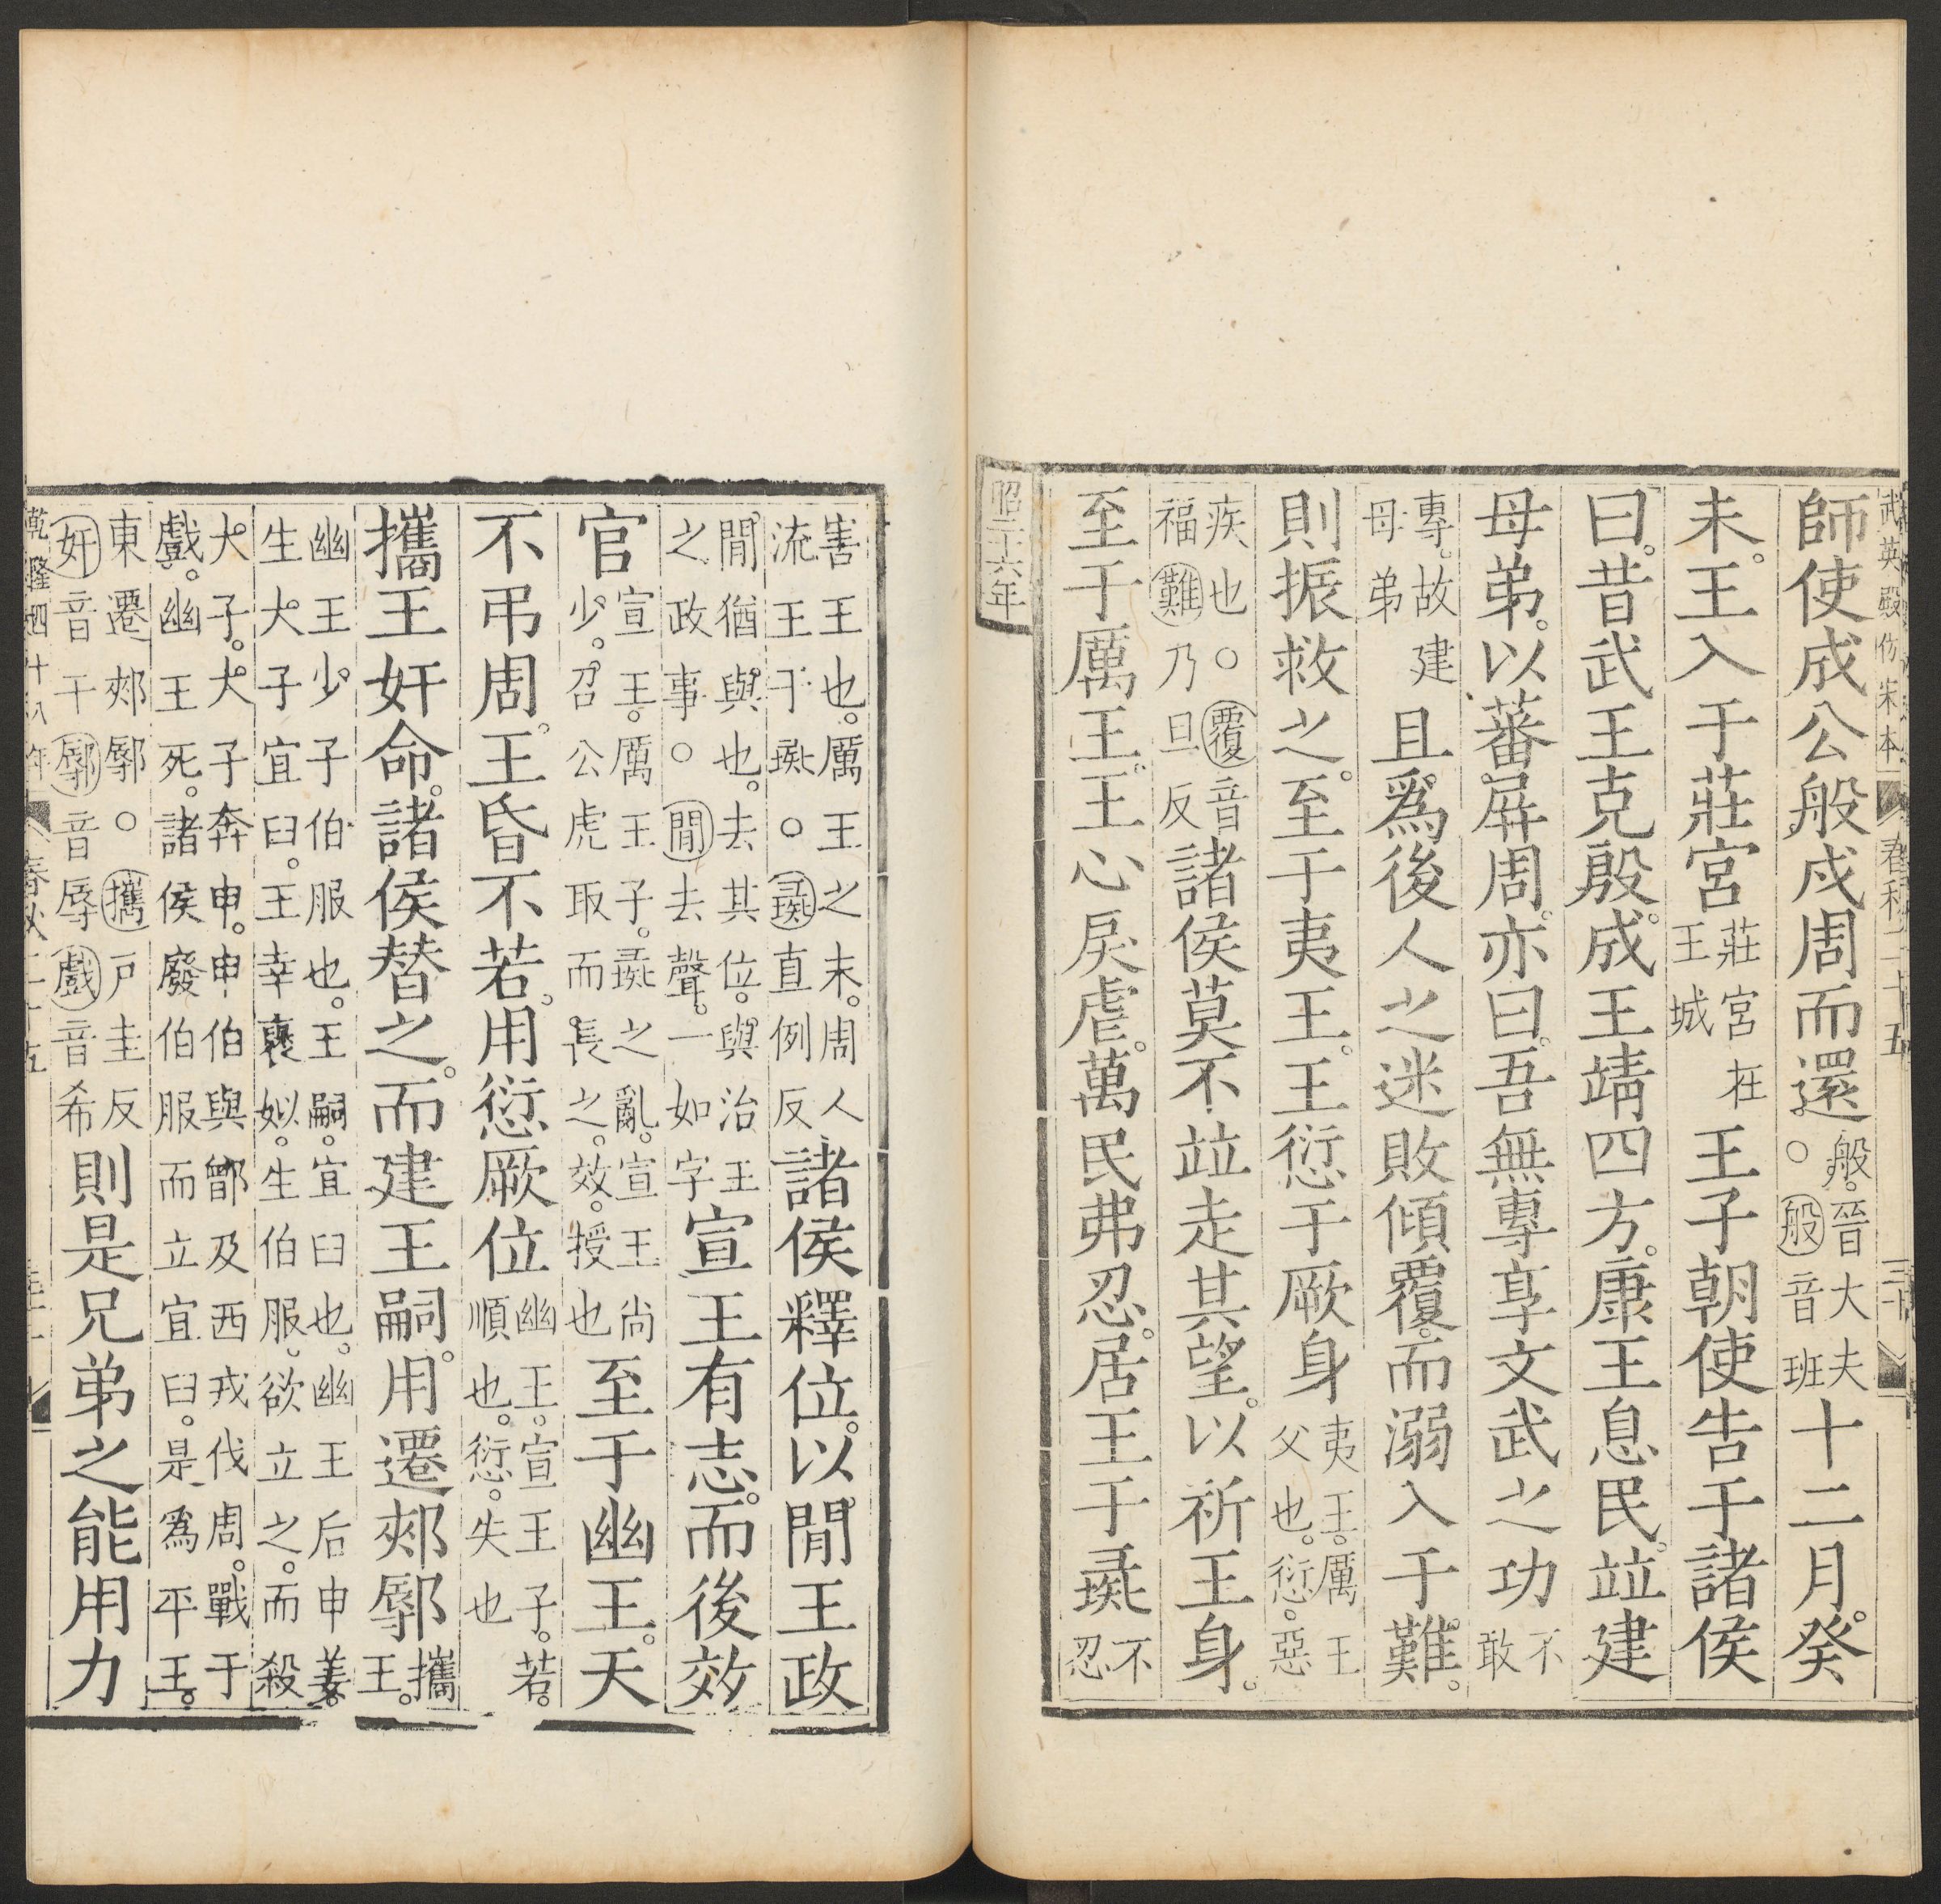 武英殿仿宋本 春秋二十五 三十
師使成公般戍周而還。般。晉大夫○般音班十二月。癸
未。王入于莊宮莊宮在王城王子朝使告于諸侯
曰。昔武王克殷。成王靖四方。康王息民。竝建
母弟。以蕃屏周。亦曰。吾無專享文武之功不敢
專。故建母弟且爲後人之迷敗傾覆。而溺入于難。
則振救之。至于夷王。王愆于厥身夷王。厲王父也。愆。惡
疾也○覆音福難乃旦反諸侯莫不竝走其望。以祈王身。
至于厲王。王心戾虐。萬民弗忍。居王于彘不忍
昭二十六年
害王也。厲王之末。周人流王于彘○彘直例反諸侯釋位。以閒王政
閒。猶與也。去其位。與治王之政事○閒去聲。一如字宣王有志。而後效
官宣王。厲王子。彘之亂。宣王尚少。召公虎取而長之。效。授也至于幽王。天
不弔周。王昏不若。用愆厥位幽王。宣王子。若。順也。愆。失也
攜王奸命。諸侯替之。而建王嗣。用遷郟鄏攜王。
幽王少子伯服也。王嗣。宜臼也。幽王后申姜。生大子宜臼。王幸襃姒。生伯服。欲立之。而殺
大子。大子奔申。申伯與鄫及西戎伐周。戰于戲。幽王死。諸侯廢伯服而立宜臼。是爲平王。
東遷郟鄏○攜戶圭反奸音干鄏音辱戲音希則是兄弟之能用力
乾隆四十八年 春秋二十五 三十一